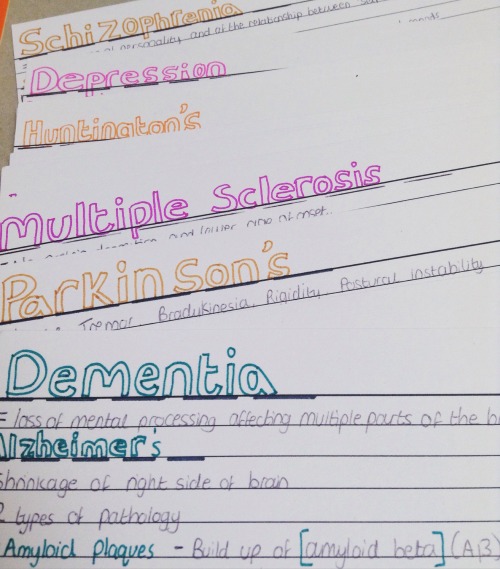 Schizophrenia
personality and of the relationship between
Depression
Huntington's
Multiple Sclerosis
Parkinson's
Tremor Bradykinesia, Rigidity Postural instability
Dementia
= loss of mental processing affecting multiple parts of the
Alzheimer's
Shrinkage of right side of brain
2 types of pathology
Amyloid plaques - Build up of [amyloid beta] (Aβ)